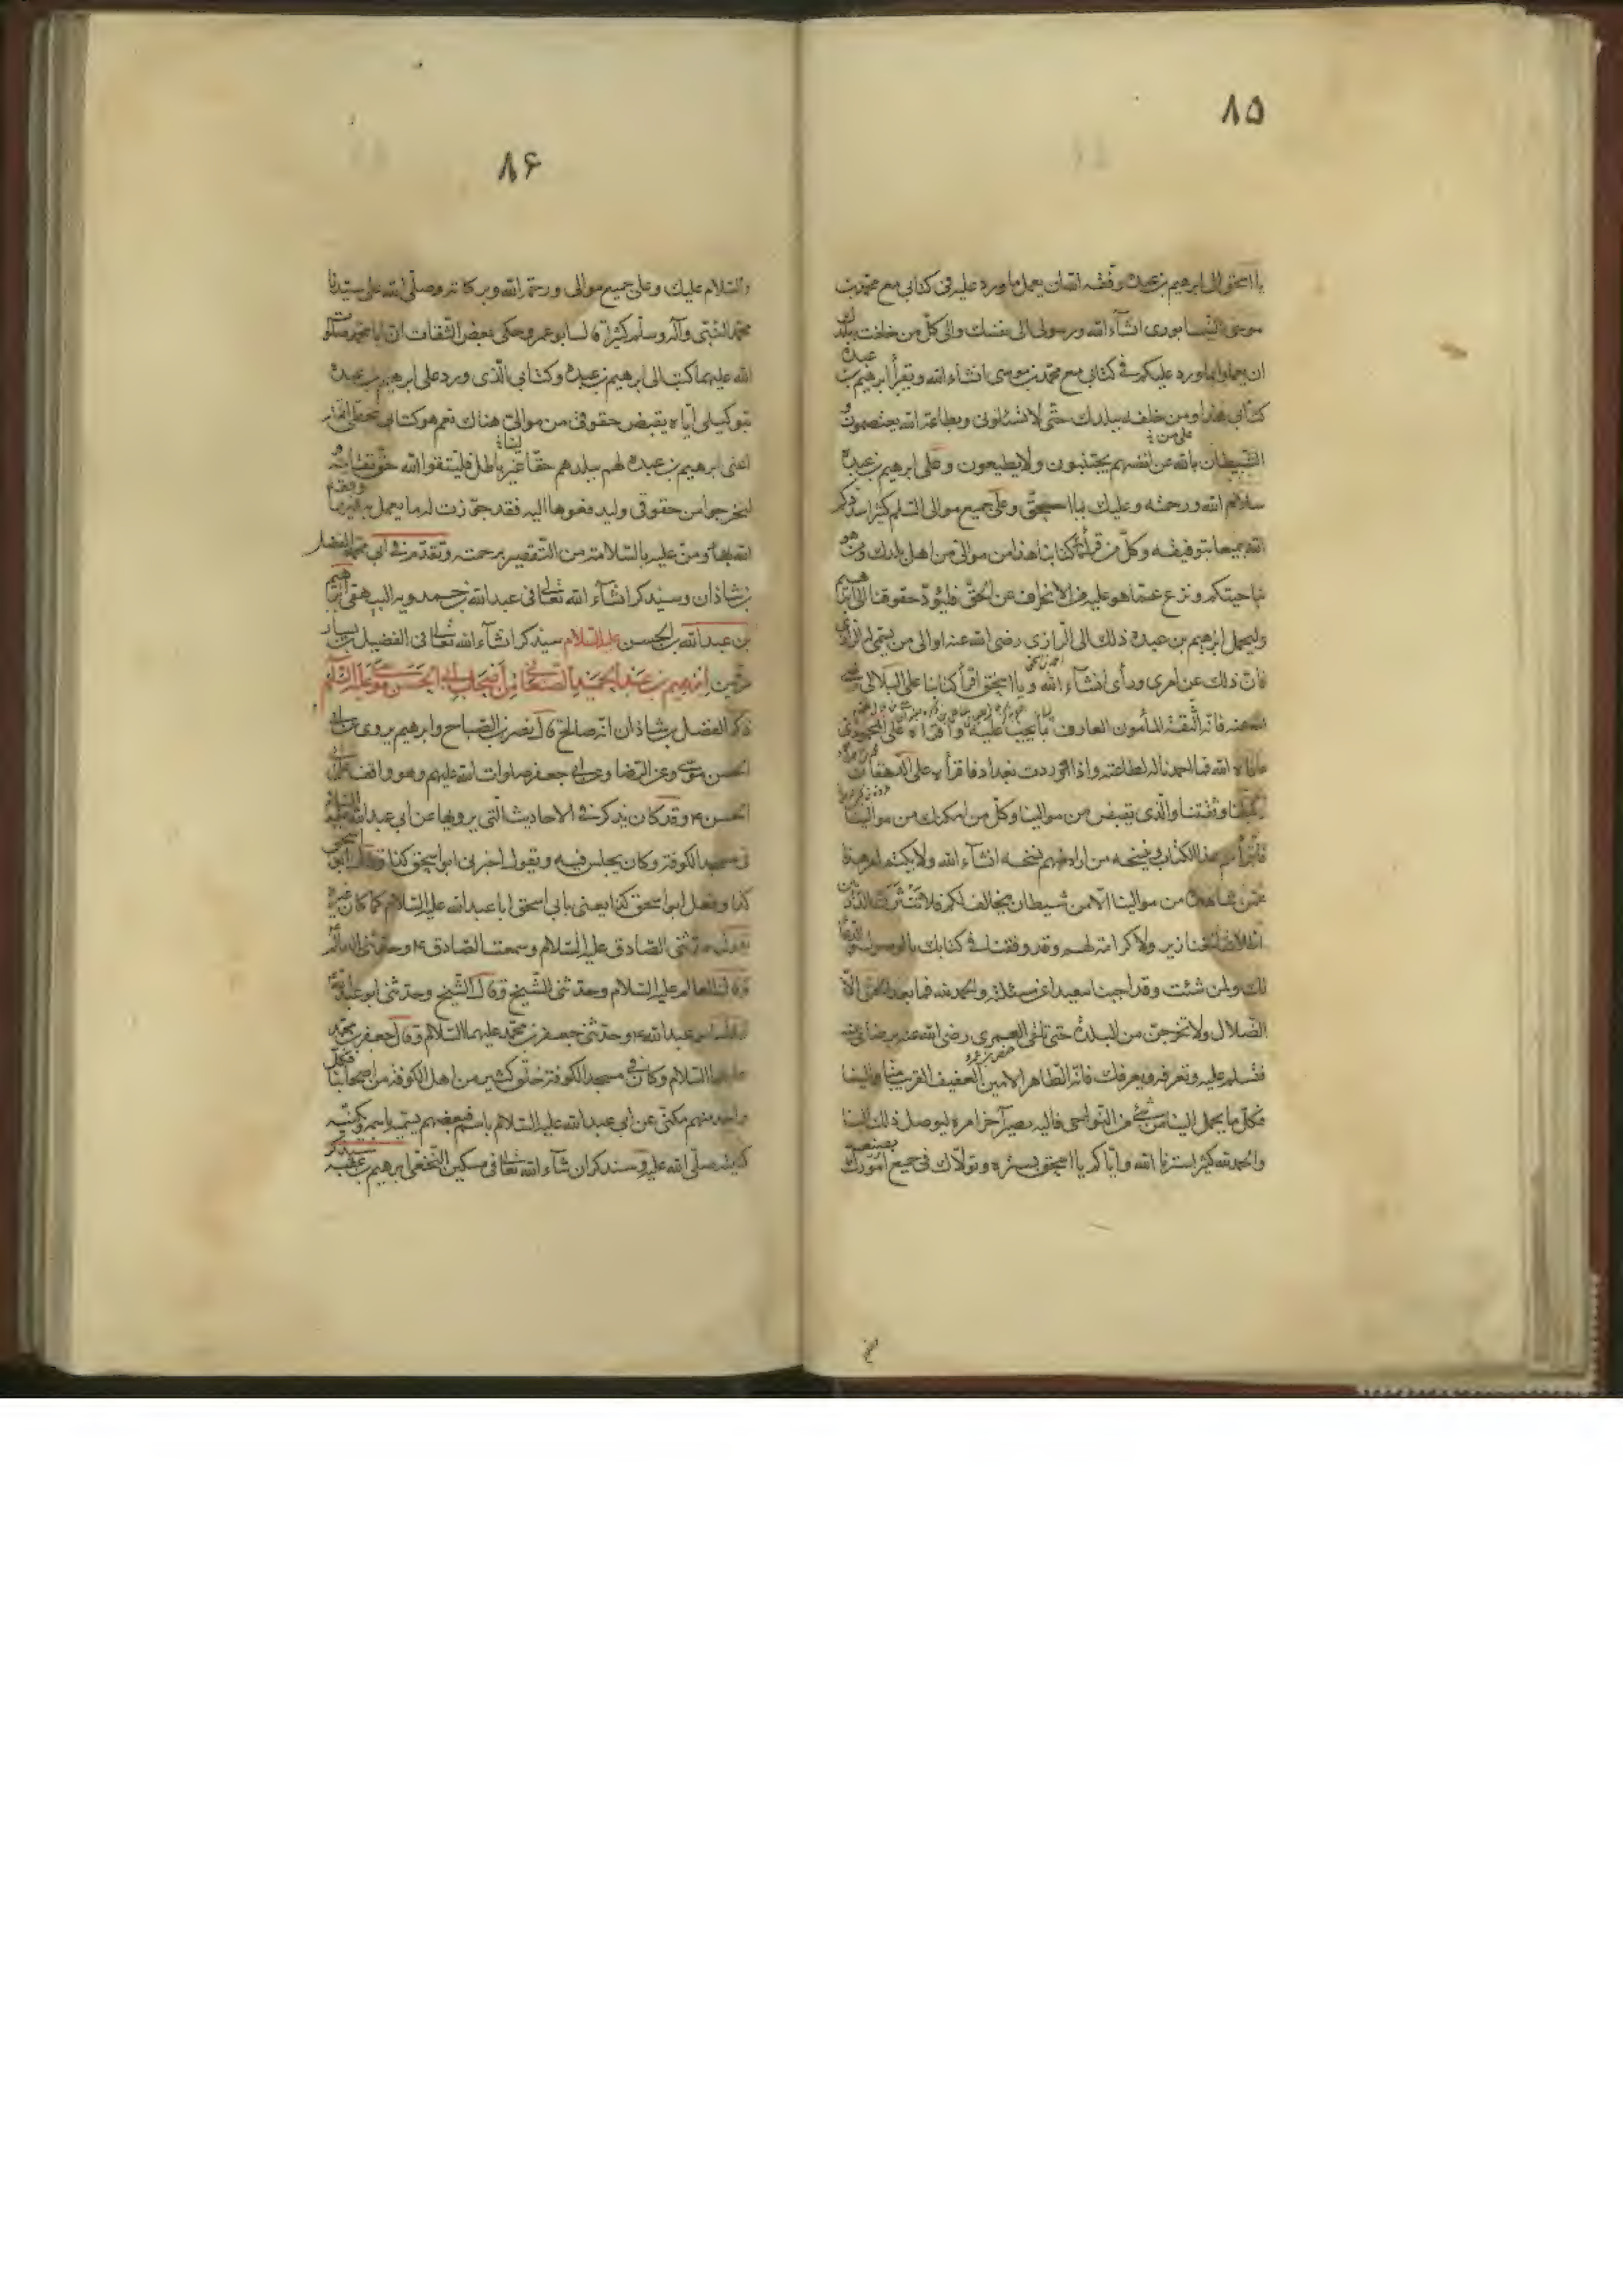 ۸۵
يا اسحق الى ابرهيم بن عبده وفقه الله ان يعمل بما ورد عليه في كتابي مع محمد بن
موسى النيسابوري انشاء الله ورسولي الى نفسك والى كل من خلفت ببلدك
ان يعملوا بما ورد عليكم في كتابي مع محمد بن موسى انشاء الله ويقرأ ابرهيم بن عبده
كتابي هذا ومن خلفه ببلدك حتى لا يتسائلوني وبطاعة الله يعتصمون و
الشيطان بالله عن انفسهم يجتنبون ولا يطيعون وعلى ابرهيم بن عبده
سلام الله ورحمته وعليك يا اسحق وعلى جميع موالي السلم كثيرا سددكم
الله جميعا بتوفيقه وكل من قرأ كتابنا هذا من موالي من اهل بلدك ومن هو
بناحيتكم ونزع عما هو عليه من الانحراف عن الحق فليؤد حقوقنا الى ابرهيم
وليحمل ابرهيم بن عبده ذلك الى الرازي رضي الله عنه او الى من يسمي له الرازي
فان ذلك عن امري ورأي انشاء الله ويا اسحق اقرأ كتابنا على البلالي رضي
الله عنه فانه الثقة المأمون العارف بما يجب عليه واقرأه على المحمودي
عافاه الله فما احمدنا له لطاعته واذا وردت بغداد فاقرأه على الدهقان
وكيلنا وثقتنا والذي يقبض من موالينا وكل من امكنك من موالينا
فاقرأهم هذا الكتاب وينسخه من اراد منهم نسخة انشاء الله ولا يكتم امر هذا
عمن شاهده من موالينا الا من شيطان مخالف لكم فلا تنثرن الدر بين
اظلاف الخنازير ولا كرامة لهم وقد وقعنا في كتابك بالوصول والدعاء
لك ولمن شئت وقد اجبنا سعيدا عن مسئلته والحمد لله فما بعد الحق الا
الضلال ولا تخرجن من البلدة حتى تلقى العمري رضي الله عنه برضاي عنه
فتسلم عليه وتعرفه ويعرفك فانه الطاهر الامين العفيف القريب منا والينا
فكل ما يحمل الينا من شيء من النواحي فاليه يصير آخر امره ليوصل ذلك الينا
والحمد لله كثيرا سترنا الله واياكم يا اسحق بستره وتولاك في جميع امورك بصنعه
۸۶
والسلام عليك وعلى جميع موالي ورحمة الله وبركاته وصلى الله على سيدنا
محمد النبي وآله وسلم كثيرا قال ابو عمرو حكى بعض الثقات ان ابا محمد صلوات
الله عليهما كتب الى ابرهيم بن عبده وكتابي الذي ورد على ابرهيم بن عبده
بتوكيلي اياه بقبض حقوقي من موالي هناك نعم هو كتابي بخطي اقمته
اعني ابرهيم بن عبده لهم ببلدهم حقا غير باطل فليتقوا الله حق تقاته و
ليخرجوا من حقوقي وليدفعوها اليه فقد جوزت له ما يعمل به فيها وفقه
الله ومن عليه بالسلامة من التقصير برحمته وتقدم في ابي محمد الفضل
بن شاذان وسيذكر انشاء الله تعالى في عبدالله بن حمدويه البيهقي ابرهيم
بن عبدالله بن الحسن عليه السلام سيذكر انشاء الله تعالى في الفضيل بن يسار
ابرهيم بن عبد الحميد الصنعاني من اصحاب ابي الحسن موسى عليه السلم
ذكر الفضل بن شاذان انه صالح قال نصر بن الصباح وابرهيم يروي عن ابي
الحسن موسى وعن الرضا وعن ابي جعفر صلوات الله عليهم وهو واقف على ابي
الحسن ع وقد كان يذكر في الاحاديث التي يرويها عن ابي عبدالله عليه السلام
في مسجد الكوفة وكان يجلس فيه ويقول اخبرني ابو اسحق كذا وقال ابو اسحق
كذا وفعل ابو اسحق كذا يعني بابي اسحق ابا عبدالله عليه السلام كما كان غيره
يقول حدثني الصادق عليه السلام وسمعت الصادق ع وحدثني العالم
وقال العالم عليه السلام وحدثني الشيخ وقال الشيخ وحدثني ابو عبدالله
وقال ابو عبدالله ع وحدثني جعفر بن محمد عليهما السلام وقال جعفر بن محمد
عليهما السلام وكان في مسجد الكوفة خلق كثير من اهل الكوفة من اصحابنا فكل
واحد منهم يكنى عن ابي عبدالله عليه السلام باسم فبعضهم يسميه باسمه وكنيته
صلى الله عليه وسنذكر ان شاء الله تعالى في مسكين النخعي ابرهيم بن عقبة سيذكر